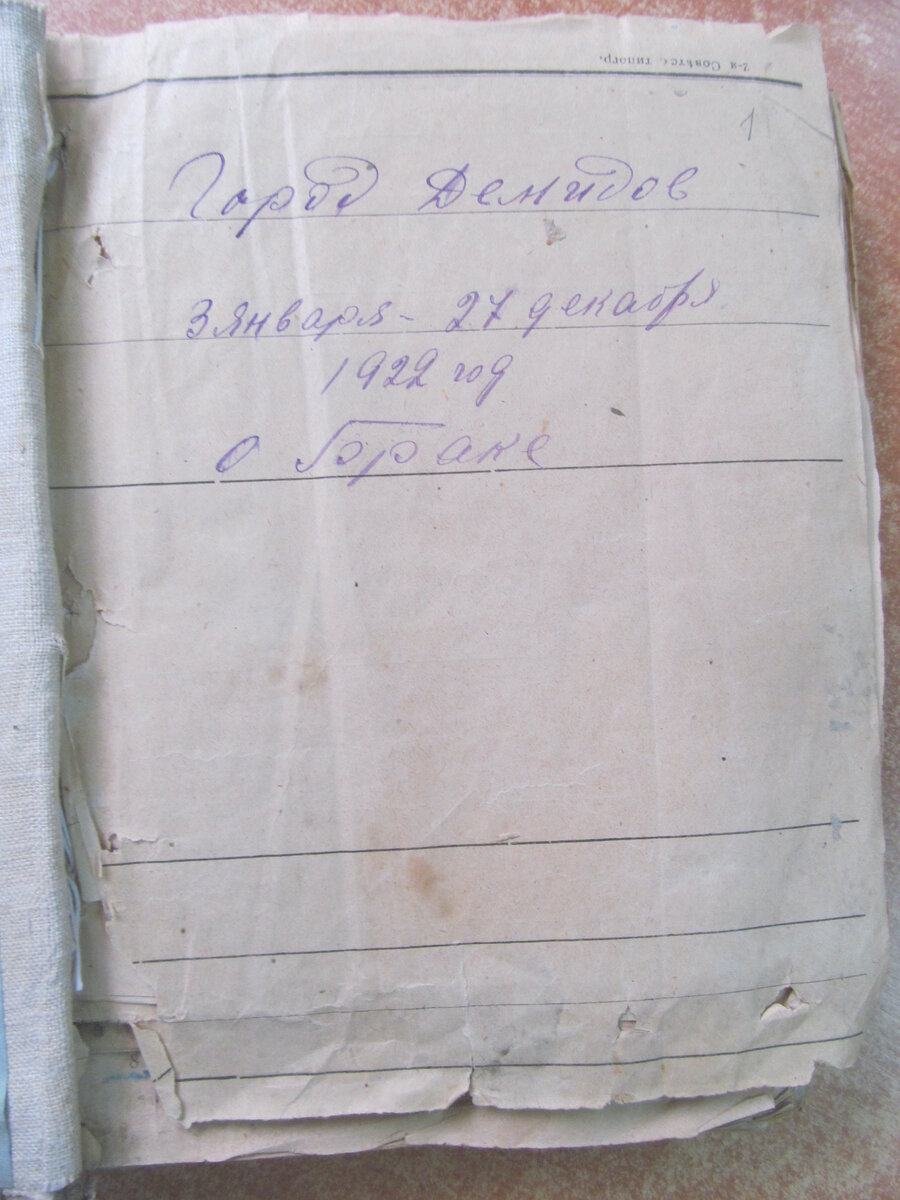 2-я Совѣтск. типогр.
1
Город Демидов
3 января - 27 декабря
1922 год
О браке